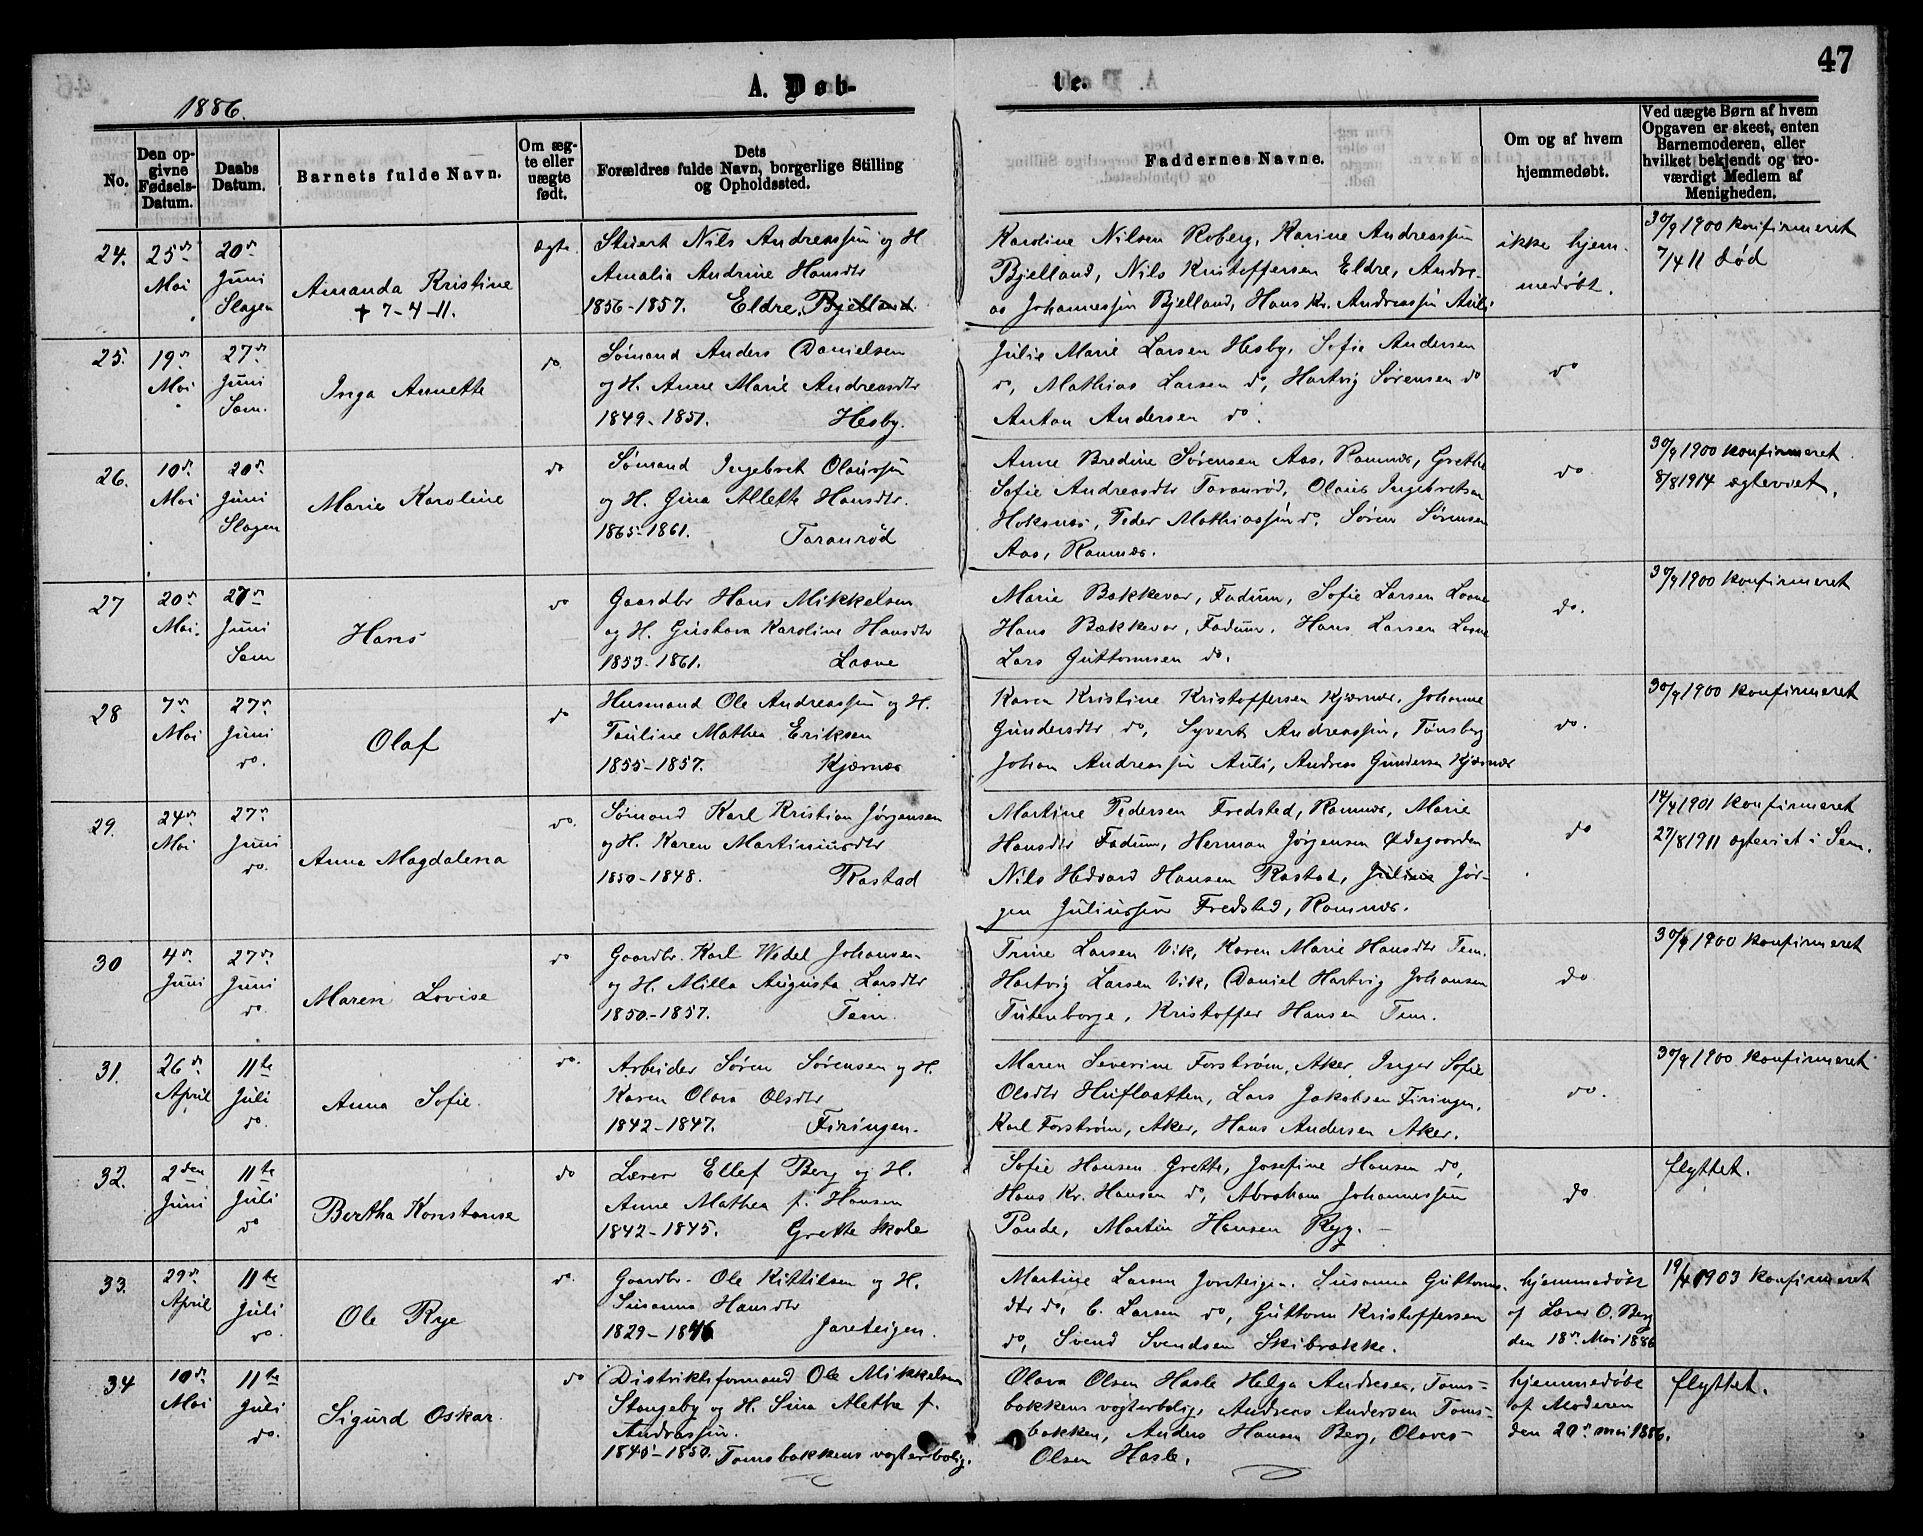 47
1886.
A. Døb-
te.
No.
Den op-
givne
Fødsels-
Datum.
Daabs
Datum.
Barnets fulde Navn.
Om æg-
te eller
uægte
født.
Dets
Forældres fulde Navn, borgerlige Stilling
og Opholdssted.
Faddernes Navne.
Om og af hvem
hjemmedøbt.
Ved uægte Børn af hvem
Opgaven er skeet, enten
Barnemoderen, eller
hvilket bekjendt og tro-
værdigt Medlem af
Menigheden.
24.
25de
Mai
20de
Juni
Slagen
Amanda Kristine
† 7-4-11.
Ægte
Stuert Nils Andreassen og H.
Amalia Andrine Hansdtr
1856-1857. Eldre. Bjelland.
Karoline Nilsen Roberg, Karine Andreassen
Bjelland, Nils Kristoffersen Eldre, Andre-
as Johannessen Bjelland, Hans Kr. Andreassen Auli.
ikke hjem-
medøbt.
30/9 1900 konfirmeret
7/4 11 død
25.
19de
Mai
27de
Juni
Sem.
Inga Annette
do
Sømand Anders Danielsen
og H. Anne Marie Andreasdtr
1849-1851. Hesby.
Julie Marie Larsen Hesby, Sofie Andersen
do, Mathias Larsen do, Hartvig Sørensen do
Anton Andersen do.
do
26.
10de
Mai
20de
Juni
Slagen
Marie Karoline
do
Sømand Ingebret Olaussen
og H. Gina Alette Hansdtr.
1865-1861. Taranrød
Anne Bredine Sørensen Aas, Ramnæs, Grethe
Sofie Andreasdtr Taranrød, Olaus Ingebretsen
Hoksnes, Peder Mathiassen do. Søren Sørensen
Aas, Ramnæs.
do.
30/9 1900 konfirmeret.
8/8 1914 ægteviet.
27
20de
Mai.
27de
Juni
Sem
Hans
do
Gaardbr Hans Mikkelsen
og H. Gustava Karoline Hansdtr
1853-1861. Lasne
Marie Bakkevar, Fadum, Sofie Larsen Lasne
Hans Bækkevar, Fadum. Hans Larsen Lasne
Lars Guttormsen do.
do.
30/9 1900 konfirmeret
28
7de
Mai
27de
Juni
do.
Olaf
do
Husmand Ole Andreassen og H.
Pauline Mathea Eriksen
1855-1857. Kjærnæs
Karen Kristine Kristoffersen Kjærnæs, Johanne
Gundersdtr do, Syvert Andreassen, Tønsberg
Johan Andreassen Auli, Andreas Gundersen Kjærnæs
do.
30/9 1900 konfirmeret
29.
24de
Mai
27de
Juni
do.
Anna Magdalena
do.
Sømand Karl Kristian Jørgensen
og H. Karen Martiniusdtr
1850-1848. Rastad
Martine Pedersen Fredsted, Ramnæs, Marie
Hansdtr Fadum, Herman Jørgensen Ødegaarden
Nils Hedvard Hansen Rastad, Juliine Jør-
gen Juliussen Fredsted, Ramnæs.
do
14/4 1901 konfirmeret
27/8 1911 ægteviet i Sem.
30
4de
Juni
27de
Juni
do.
Maren Lovise
do
Gaardbr. Karl Wedel Johansen
og H. Milla Augusta Larsdtr
1850-1857. Tem.
Trine Larsen Vik, Karen Marie Hansdtr Tem.
Hartvig Larsen Vik, Daniel Hartvig Johansen
Tutenborge, Kristoffer Hansen Tem.
do
30/9 1900 konfirmeret
31.
26de
April
11te
Juli
do.
Anna Sofie.
do.
Arbeider Søren Sørensen og H.
Karen Olava Olsdtr
1842-1847. Firingen.
Maren Severine Forstrøm, Aker, Inger Sofie
Olsdtr Huflaatten, Lars Jakobsen Firingen,
Karl Forstrøm, Aker, Hans Andersen Aker.
do.
30/9 1900 konfirmeret
32.
2den
Juni
11te
Juli
do
Bertha Konstanse
do
Lærer Ellef Berg og H.
Anne Mathea f. Hansen
1842-1845. Grette Skole
Sofie Hansen Grette, Josefine Hansen do,
Hans Kr. Hansen do, Abraham Johannessen
Pande, Martin Hansen Ryg. -
do
flyttet.
33.
29de
April
11te
Juli
do.
Ole Rye
do.
Gaardbr. Ole Kittilsen og H.
Susanna Hansdtr
1829-1846 Jareteigen.
Martine Larsen Jareteigen. Susanna Guttorms-
dtr do, C. Larsen do, Guttorm Kristoffersen
do, Svend Svendsen Skibrække.
hjemmedøbt
af Lærer O. Berg
den 18de Mai 1886
19/4 1903 konfirmeret
34
10de
Mai
11te
Juli
do.
Sigurd Oskar.
do
Distriktsformand Ole Mikkelsen
Stangeby og H. Sina Alethe f.
Andreassen.
1845-1850. Tomsbakkens vogterbolig.
Olava Olsen Hasle Helga Andresen, Toms-
bakkens vogterbolig, Andreas Andersen Toms-
bakken, Anders Hansen Berg, Olaves
Olsen Hasle.
hjemmedøbt
af Moderen
den 20de mai 1886.
flyttet.